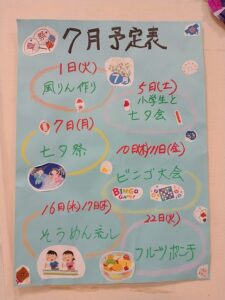 7月予定表
1日(火)
風りん作り
7月
5日(土)
小学生と
七夕会
7日(月)
七夕祭
10日(木)11日(金)
ビンゴ大会
BINGO
GAME!
16日(水)17日(木)
そうめん流し
22日(火)
フルーツポンチ